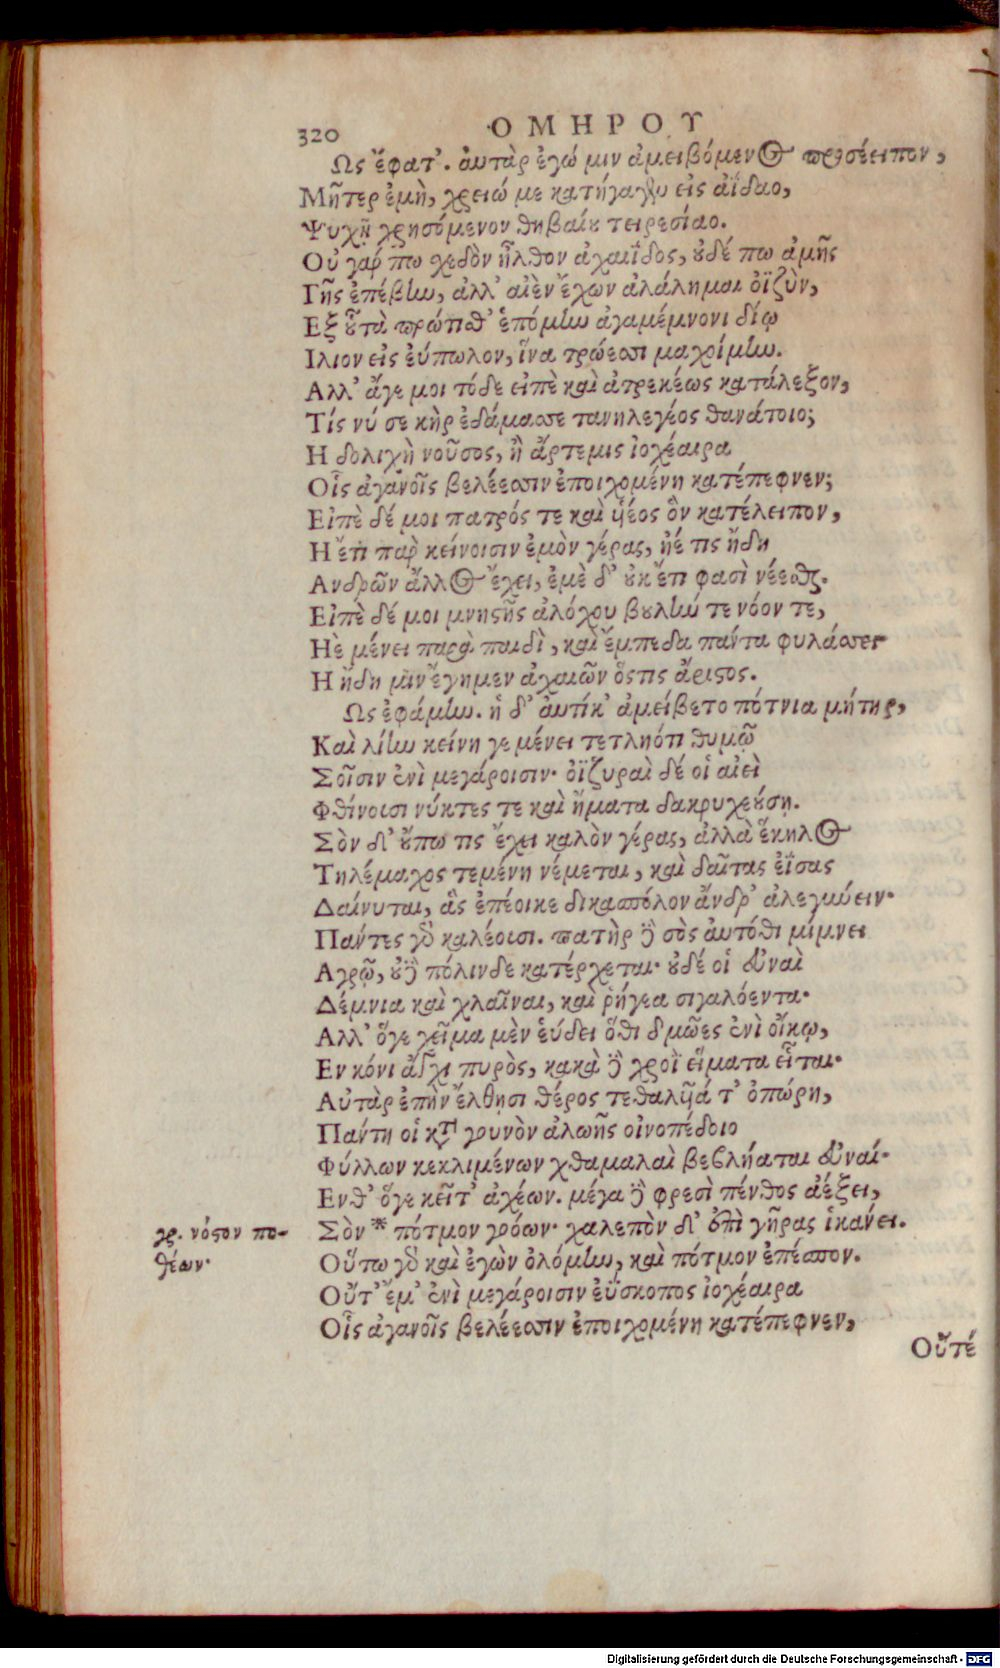 320 ΟΜΗΡΟΥ
Ως ἔφατ'. αὐτὰρ ἐγώ μιν ἀμειβόμενος προσέειπον,
Μῆτερ ἐμὴ, χρειώ με κατήγαγεν εἰς ἀΐδαο,
Ψυχῇ χρησόμενον θηβαίου τειρεσίαο.
Οὐ γάρ πω σχεδὸν ἦλθον ἀχαιΐδος, οὐδέ πω ἀμῆς
Γῆς ἐπέβην, ἀλλ' αἰὲν ἔχων ἀλάλημαι ὀϊζὺν,
Εξ οὗ τὰ πρώτισθ' ἑπόμην ἀγαμέμνονι δίῳ
Ιλιον εἰς ἐύπωλον, ἵνα τρώεσσι μαχοίμην.
Αλλ' ἄγε μοι τόδε εἰπὲ καὶ ἀτρεκέως κατάλεξον,
Τίς νύ σε κὴρ ἐδάμασσε τανηλεγέος θανάτοιο;
Η δολιχὴ νοῦσος, ἢ ἄρτεμις ἰοχέαιρα
Οἷς ἀγανοῖς βελέεσσιν ἐποιχομένη κατέπεφνεν;
Εἰπὲ δέ μοι πατρός τε καὶ υἱέος ὃν κατέλειπον,
Η ἔτι παρ κείνοισιν ἐμὸν γέρας, ἠέ τις ἤδη
Ανδρῶν ἄλλος ἔχει, ἐμὲ δ' οὐκ ἔτι φασὶ νέεσθαι.
Εἰπὲ δέ μοι μνηστῆς ἀλόχου βουλήν τε νόον τε,
Ηὲ μένει παρὰ παιδὶ, καὶ ἔμπεδα πάντα φυλάσσει
Η ἤδη μιν ἔγημεν ἀχαιῶν ὅστις ἄριστος.
Ως ἐφάμην. ἡ δ' αὐτίκ' ἀμείβετο πότνια μήτηρ,
Καὶ λίην κείνη γε μένει τετληότι θυμῷ
Σοῖσιν ἐνὶ μεγάροισιν· ὀϊζυραὶ δέ οἱ αἰεὶ
Φθίνουσι νύκτες τε καὶ ἤματα δακρυχεούσῃ.
Σὸν δ' οὔπω τις ἔχει καλὸν γέρας, ἀλλὰ ἕκηλος
Τηλέμαχος τεμένη νέμεται, καὶ δαῖτας ἐΐσας
Δαίνυται, ἃς ἐπέοικε δικασπόλον ἄνδρ' ἀλεγύνειν·
Πάντες γὰρ καλέουσι. πατὴρ δὲ σὸς αὐτόθι μίμνει
Αγρῷ, οὐδὲ πόλινδε κατέρχεται· οὐδέ οἱ εὐναὶ
Δέμνια καὶ χλαῖναι, καὶ ῥήγεα σιγαλόεντα·
Αλλ' ὅγε χεῖμα μὲν εὕδει ὅθι δμῶες ἐνὶ οἴκῳ,
Εν κόνι ἄγχι πυρὸς, κακὰ δὲ χροῒ εἵματα εἷται·
Αὐτὰρ ἐπὴν ἔλθῃσι θέρος τεθαλυῖά τ' ὀπώρη,
Πάντη οἱ κατὰ γουνὸν ἀλωῆς οἰνοπέδοιο
Φύλλων κεκλιμένων χθαμαλαὶ βεβλήαται εὐναί·
Ενθ' ὅγε κεῖτ' ἀχέων. μέγα δὲ φρεσὶ πένθος ἀέξει,
Σὸν * πότμον γοόων· χαλεπὸν δ' ἐπὶ γῆρας ἱκάνει.
γρ. νόστον πο-
θέων·
Οὕτω γὰρ καὶ ἐγὼν ὀλόμην, καὶ πότμον ἐπέσπον.
Οὔτ' ἔμ' ἐνὶ μεγάροισιν ἐΰσκοπος ἰοχέαιρα
Οἷς ἀγανοῖς βελέεσσιν ἐποιχομένη κατέπεφνεν,
Οὔτέ
Digitalisierung gefördert durch die Deutsche Forschungsgemeinschaft - DFG